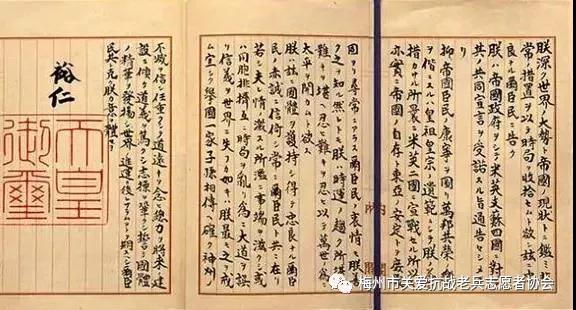 朕深ク世界ノ大勢ト帝國ノ現状トニ鑑ミ非
常ノ措置ヲ以テ時局ヲ收拾セムト欲シ茲ニ忠
良ナル爾臣民ニ告ク
朕ハ帝國政府ヲシテ米英支蘇四國ニ對シ
其ノ共同宣言ヲ受諾スル旨通告セシメタリ
抑帝國臣民ノ康寧ヲ圖リ萬邦共榮ノ樂
ヲ偕ニスルハ皇祖皇宗ノ遺範ニシテ朕ノ
措カサル所曩ニ米英二國ニ宣戰セル所以
亦實ニ帝國ノ自存ト東亞ノ安定トヲ庶
固ヨリ尋常ニアラス爾臣民ノ衷情モ朕善
ク之ヲ知ル然レトモ朕ハ時運ノ趨ク所堪ヘ
難キヲ堪ヘ忍ヒ難キヲ忍ヒ以テ萬世ノ爲
太平ヲ開カムト欲ス
朕ハ茲ニ國體ヲ護持シ得テ忠良ナル爾臣
民ノ赤誠ニ信倚シ常ニ爾臣民ト共ニ在リ
若シ夫レ情ノ激スル所濫ニ事端ヲ滋クシ或
ハ同胞排擠互ニ時局ヲ亂リ爲ニ大道ヲ誤
リ信義ヲ世界ニ失フカ如キハ朕最モ之ヲ戒
ム宜シク擧國一家子孫相傳ヘ確ク神州ノ
不滅ヲ信シ任重クシテ道遠キヲ念ヒ總力ヲ將來ノ建
設ニ傾ケ道義ヲ篤クシ志操ヲ鞏クシ誓テ國體
ノ精華ヲ發揚シ世界ノ進運ニ後レサラムコトヲ期スヘシ爾臣
民其レ克ク朕カ意ヲ體セヨ
裕仁
天皇
御璽
梅州市关爱抗战老兵志愿者协会